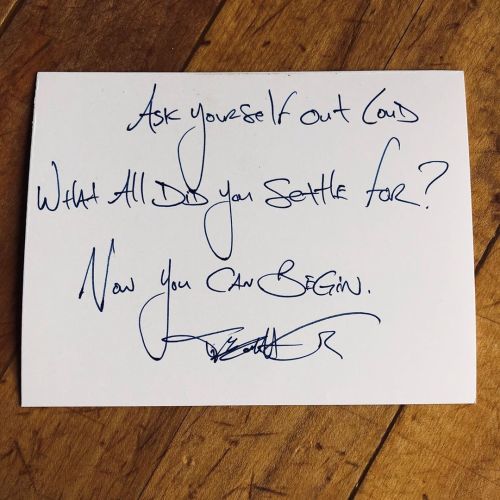 Ask yourself out loud
What all did you settle for?
Now you can begin.